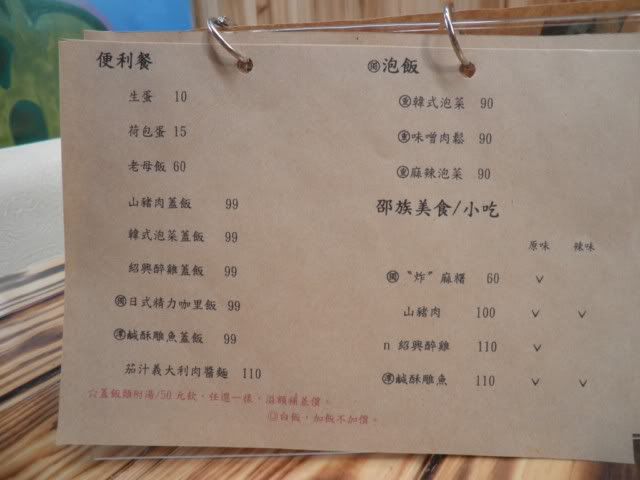 便利餐
生蛋 10
荷包蛋 15
老母飯 60
山豬肉蓋飯 99
韓式泡菜蓋飯 99
紹興醉雞蓋飯 99
日式精力咖里飯 99
鹹酥雕魚蓋飯 99
茄汁義大利肉醬麵 110
☆蓋飯麵附湯/50元飲,任選一樣,溢額補差價。
◎白飯,加飯不加價。
泡飯
韓式泡菜 90
味噌肉鬆 90
麻辣泡菜 90
邵族美食/小吃
原味 辣味
"炸"麻糬 60 ˇ
山豬肉 100 ˇ ˇ
n 紹興醉雞 110 ˇ
鹹酥雕魚 110 ˇ ˇ